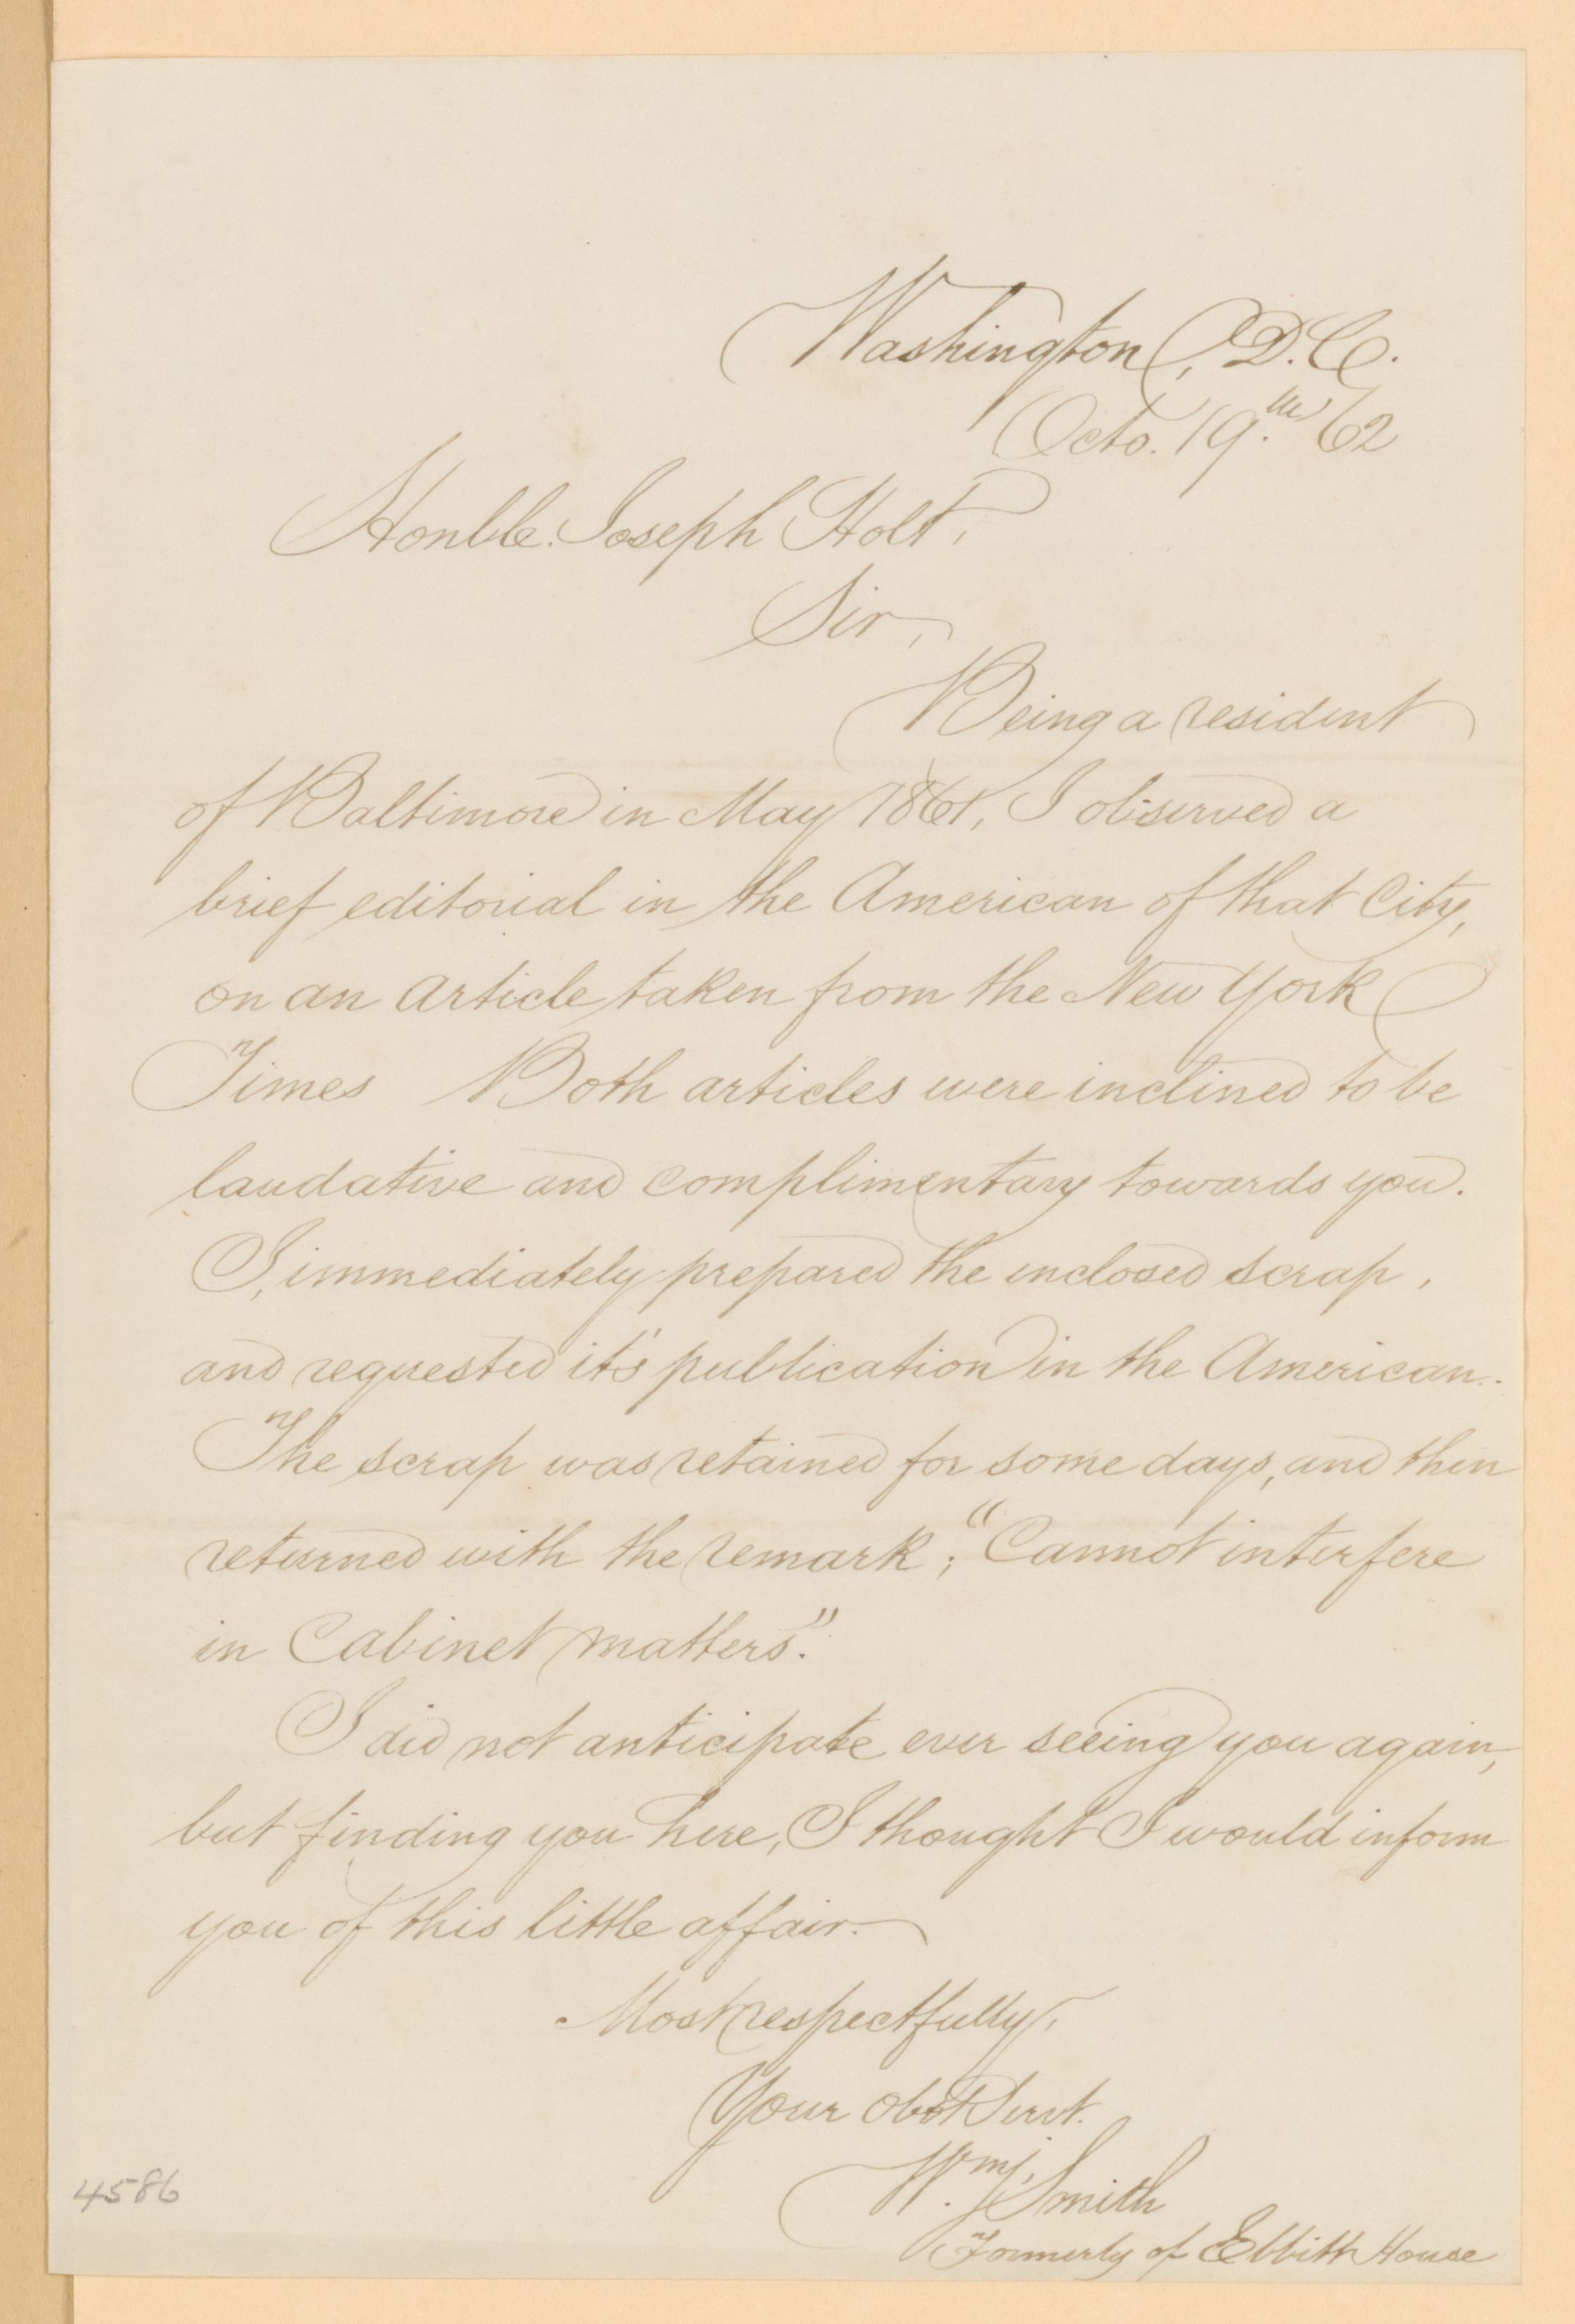 Washington, D.C.
Octo. 19th. 62
Honble. Joseph Holt,
Sir,
Being a resident
of Baltimore in May 1861, I observed a
brief editorial in the American of that City,
on an article taken from the New York
Times Both articles were inclined to be
laudative and complimentary towards you.
I, immediately prepared the inclosed scrap,
and requested it's publication in the American.
The scrap was retained for some days, and then
returned with the remark; "Cannot interfere
in Cabinet matters".
I did not anticipate ever seeing you again,
but finding you here, I thought I would inform
you of this little affair.
Most respectfully,
Your obdt Servt.
Wm. Smith
Formerly of Ebbitt House
4586